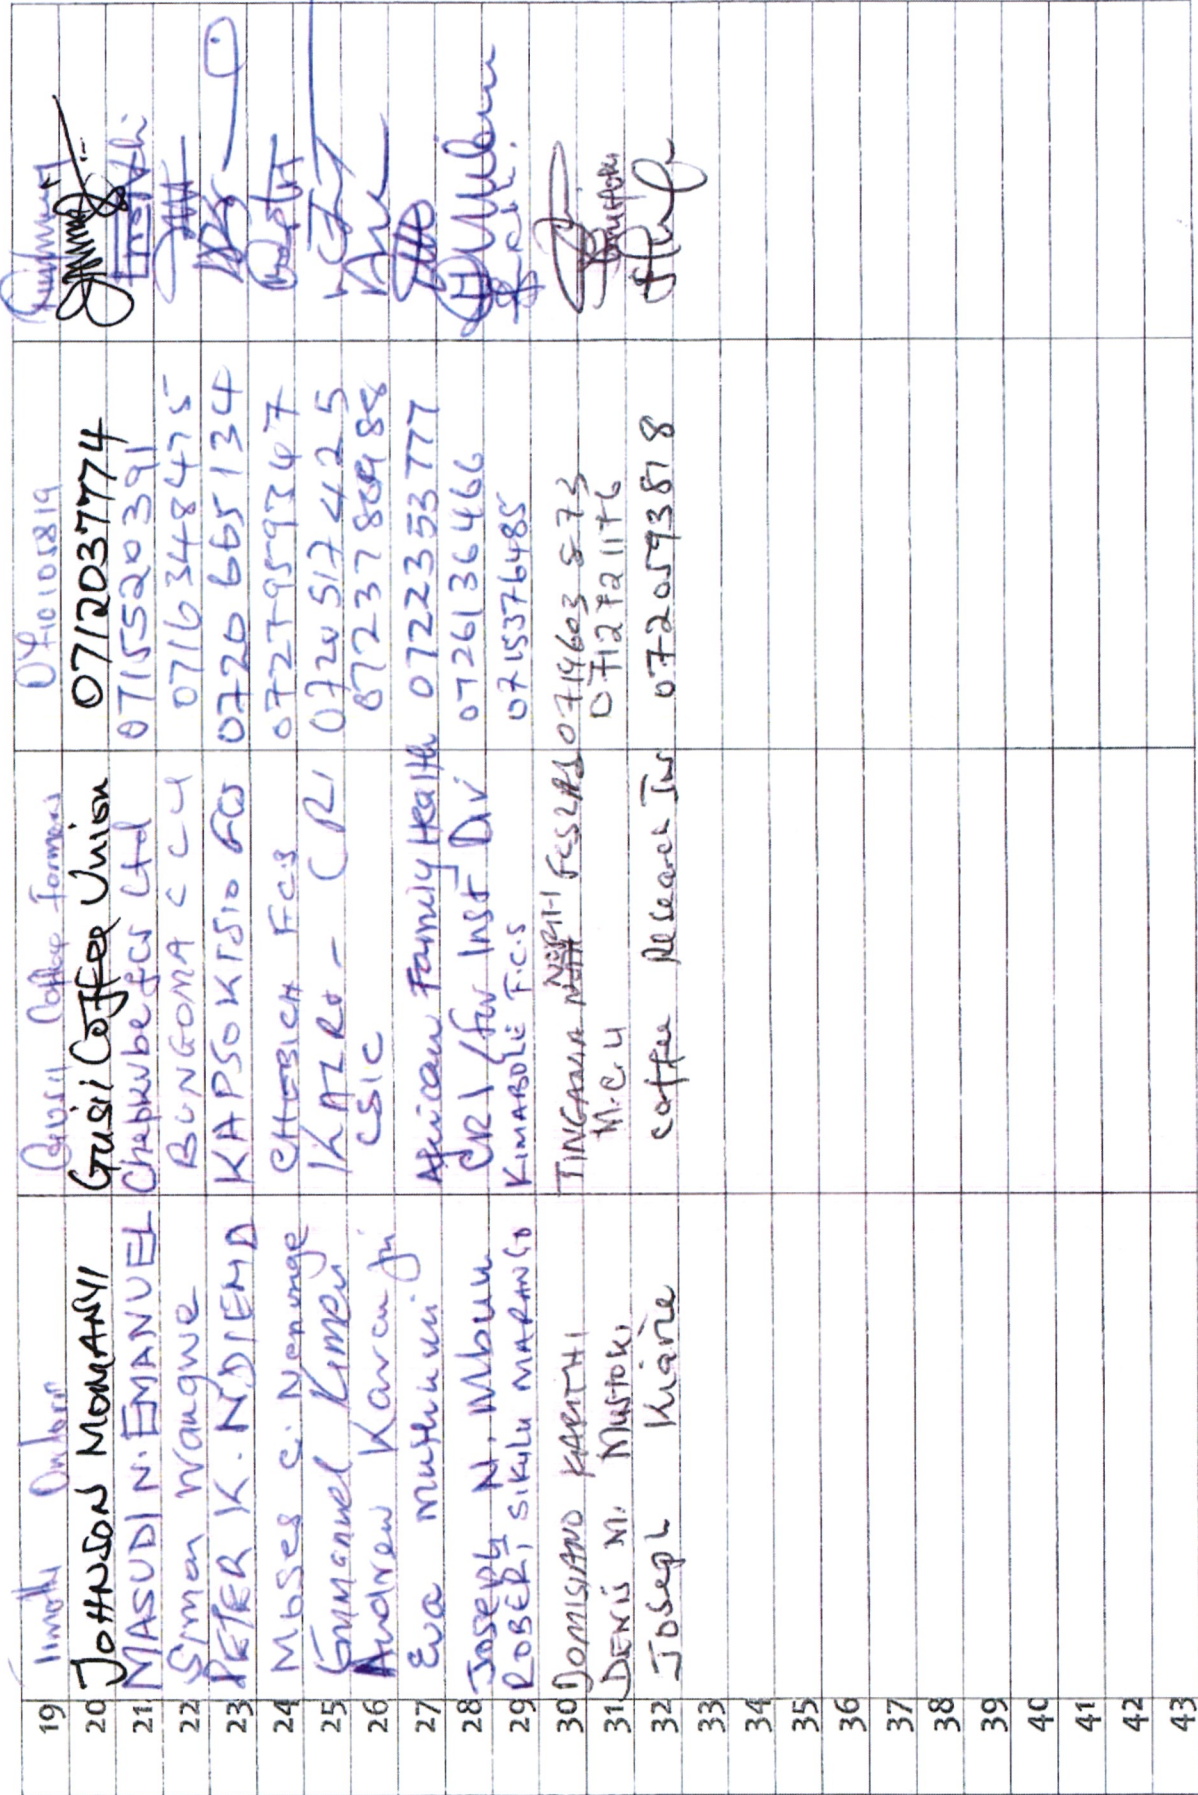 19 Timothy Gusii Coffee Farmers
20 JOHNSON MOMANYI Gusii Coffee Union 0712037774
21 MASUDI N. EMANUEL Chepkube fcs Ltd 0715520391
22 Simon Wangwe BUNGOMA C C U 0716348475
23 PETER K. NDIEMA KAPSOKISIO FCS 0720665134
24 Moses C. CHEBICH F.C.S
25 Emmanuel Kimeu KALRO - CRI 0720517425
26 Andrew Karanja CSIC
27 Eva Muthuuri African Family Health 0722353777
28 Joseph N. Mbuu CRI for Inst Div 0726136466
29 ROBERT SIKULU MARANGO KIMABOLE F.C.S 0715376485
30 DOMISIANO KARITHI
31 DENIS M. M.C.U
32 Joseph Kiarie Coffee Research 0720593818
33
34
35
36
37
38
39
40
41
42
43